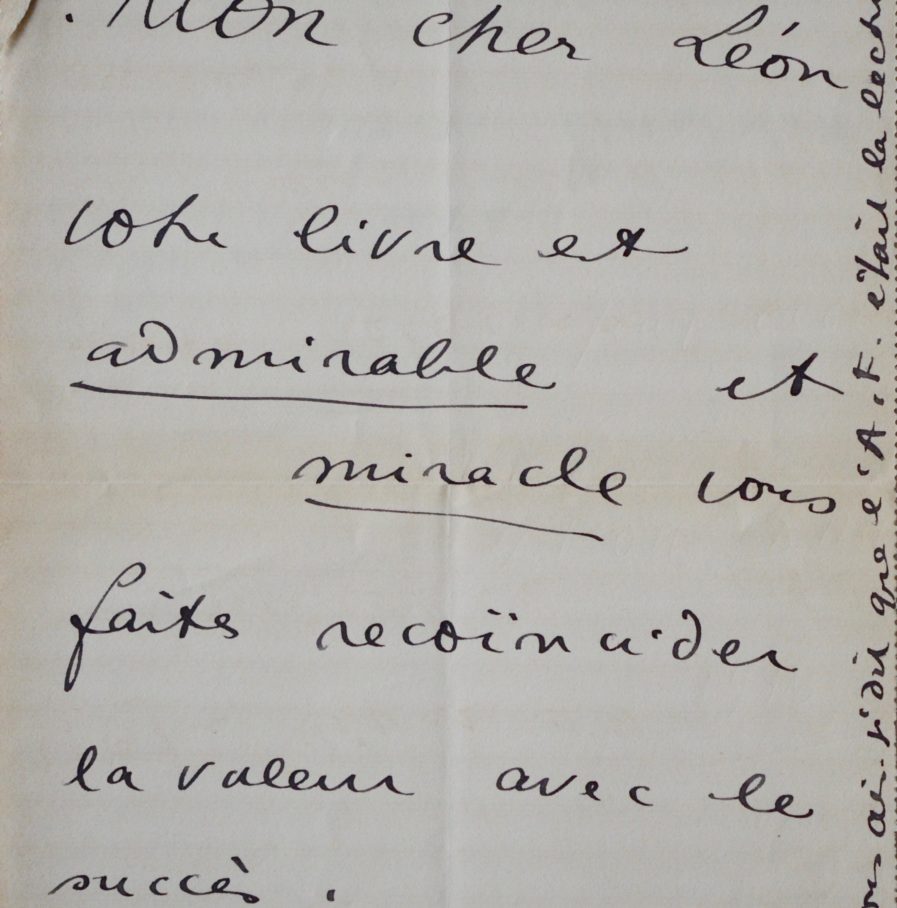 Mon cher Léon
votre livre est
admirable et
miracle vous
faites recoïncider
la valeur avec le
succès.
ai-j'dit que l'A.F. était la